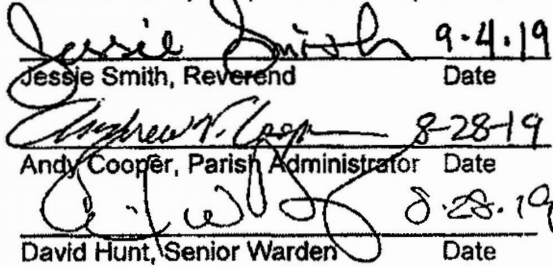 Jessie Smith 9.4.19
Jessie Smith, Reverend Date
Andrew Cooper 8-28-19
Andy Cooper, Parish Administrator Date
8.28.19
David Hunt, Senior Warden Date